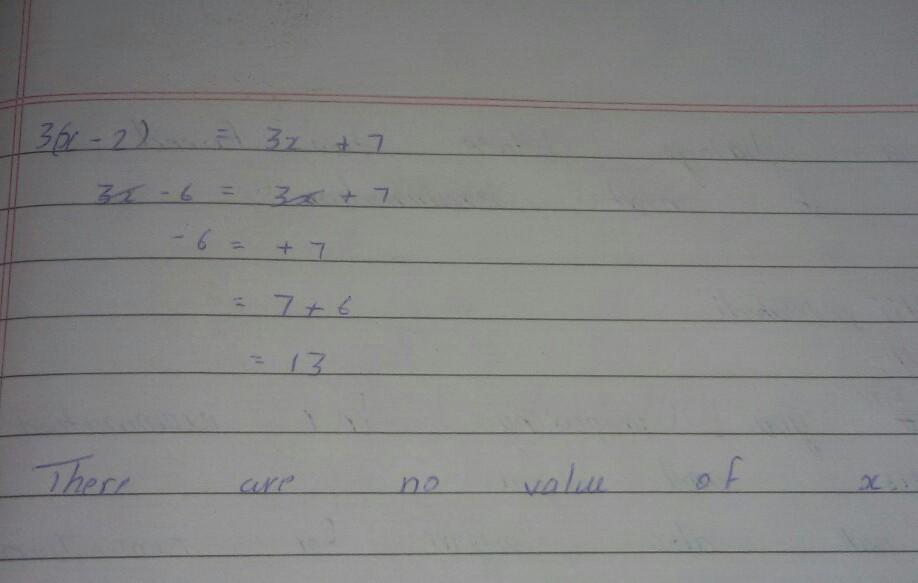 3(x - 2) = 3x + 7
3x - 6 = 3x + 7
- 6 = + 7
= 7 + 6
= 13
There are no value of x.